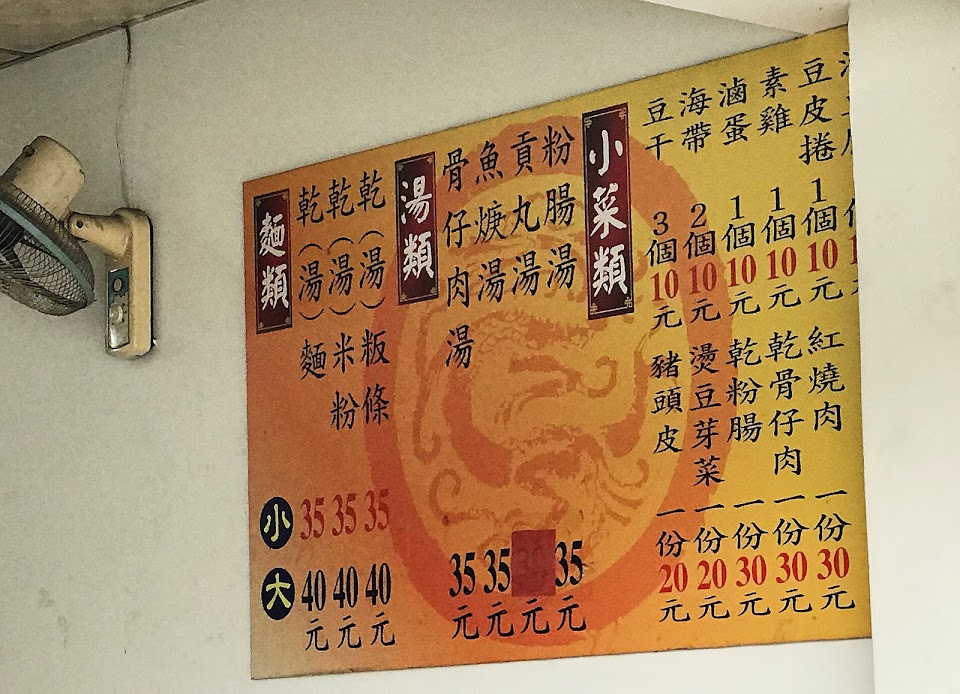 麵類
小
大
乾(湯)麵 35 40元
乾(湯)米粉 35 40元
乾(湯)粄條 35 40元
湯類
骨仔肉湯 35元
魚焿湯 35元
貢丸湯 元
粉腸湯 35元
小菜類
豆干 3個10元
海帶 2個10元
滷蛋 1個10元
素雞 1個10元
豆皮捲 1個10元
豬頭皮 一份20元
燙豆芽菜 一份20元
乾粉腸 一份30元
乾骨仔肉 一份30元
紅燒肉 一份30元